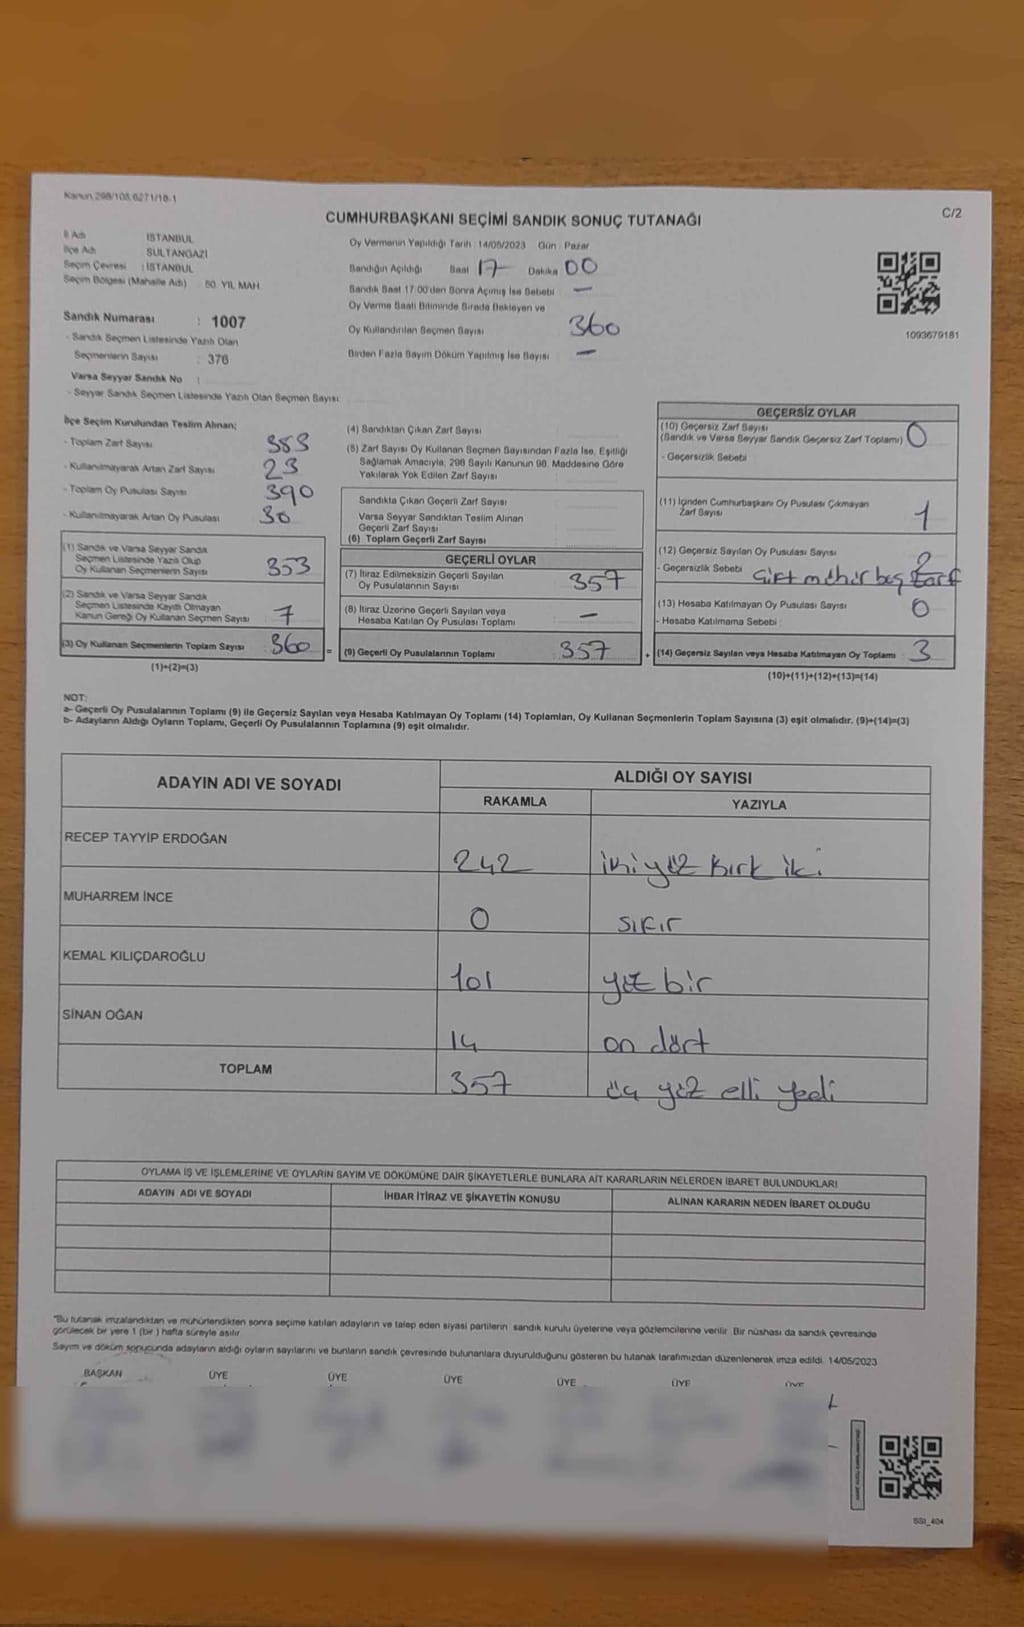 Kanun 298/103,6271/18-1
C/2
CUMHURBAŞKANI SEÇİMİ SANDIK SONUÇ TUTANAĞI
İl Adı İSTANBUL
İlçe Adı SULTANGAZİ
Seçim Çevresi : İSTANBUL
Seçim Bölgesi (Mahalle Adı) 50. YIL MAH.
Sandık Numarası : 1007
- Sandık Seçmen Listesinde Yazılı Olan
Seçmenlerin Sayısı : 376
Varsa Seyyar Sandık No :
- Seyyar Sandık Seçmen Listesinde Yazılı Olan Seçmen Sayısı
Oy Vermenin Yapıldığı Tarih : 14/05/2023 Gün : Pazar
Sandığın Açıldığı Saat 17 Dakika 00
Sandık Saat 17:00'den Sonra Açılmış İse Sebebi —
Oy Verme Saati Bitiminde Sırada Bekleyen ve
Oy Kullandırılan Seçmen Sayısı 360
Birden Fazla Sayım Döküm Yapılmış İse Sayısı —
1093679181
İlçe Seçim Kurulundan Teslim Alınan;
- Toplam Zarf Sayısı 383
- Kullanılmayarak Artan Zarf Sayısı 23
- Toplam Oy Pusulası Sayısı 390
- Kullanılmayarak Artan Oy Pusulası 30
(1) Sandık ve Varsa Seyyar Sandık
Seçmen Listesinde Yazılı Olup
Oy Kullanan Seçmenlerin Sayısı 353
(2) Sandık ve Varsa Seyyar Sandık
Seçmen Listesinde Kayıtlı Olmayan
Kanun Gereği Oy Kullanan Seçmen Sayısı 7
(3) Oy Kullanan Seçmenlerin Toplam Sayısı 360 =
(1)+(2)=(3)
(4) Sandıktan Çıkan Zarf Sayısı
(5) Zarf Sayısı Oy Kullanan Seçmen Sayısından Fazla İse, Eşitliği
Sağlamak Amacıyla; 298 Sayılı Kanunun 98. Maddesine Göre
Yakılarak Yok Edilen Zarf Sayısı
Sandıkta Çıkan Geçerli Zarf Sayısı
Varsa Seyyar Sandıktan Teslim Alınan
Geçerli Zarf Sayısı
(6) Toplam Geçerli Zarf Sayısı
GEÇERLİ OYLAR
(7) İtiraz Edilmeksizin Geçerli Sayılan
Oy Pusulalarının Sayısı 357
(8) İtiraz Üzerine Geçerli Sayılan veya
Hesaba Katılan Oy Pusulası Toplamı —
(9) Geçerli Oy Pusulalarının Toplamı 357 +
GEÇERSİZ OYLAR
(10) Geçersiz Zarf Sayısı
(Sandık ve Varsa Seyyar Sandık Geçersiz Zarf Toplamı) 0
- Geçersizlik Sebebi :
(11) İçinden Cumhurbaşkanı Oy Pusulası Çıkmayan
Zarf Sayısı 1
(12) Geçersiz Sayılan Oy Pusulası Sayısı 2
- Geçersizlik Sebebi çift mühür boş zarf
(13) Hesaba Katılmayan Oy Pusulası Sayısı 0
- Hesaba Katılmama Sebebi :
(14) Geçersiz Sayılan veya Hesaba Katılmayan Oy Toplamı 3
(10)+(11)+(12)+(13)=(14)
NOT:
a- Geçerli Oy Pusulalarının Toplamı (9) ile Geçersiz Sayılan veya Hesaba Katılmayan Oy Toplamı (14) Toplamları, Oy Kullanan Seçmenlerin Toplam Sayısına (3) eşit olmalıdır. (9)+(14)=(3)
b- Adayların Aldığı Oyların Toplamı, Geçerli Oy Pusulalarının Toplamına (9) eşit olmalıdır.
ADAYIN ADI VE SOYADI
ALDIĞI OY SAYISI
RAKAMLA YAZIYLA
RECEP TAYYİP ERDOĞAN 242 iki yüz kırk iki
MUHARREM İNCE 0 sıfır
KEMAL KILIÇDAROĞLU 101 yüz bir
SİNAN OĞAN 14 on dört
TOPLAM 357 üç yüz elli yedi
OYLAMA İŞ VE İŞLEMLERİNE VE OYLARIN SAYIM VE DÖKÜMÜNE DAİR ŞİKAYETLERLE BUNLARA AİT KARARLARIN NELERDEN İBARET BULUNDUKLARI
ADAYIN ADI VE SOYADI İHBAR İTİRAZ VE ŞİKAYETİN KONUSU ALINAN KARARIN NEDEN İBARET OLDUĞU
"Bu tutanak imzalandıktan ve mühürlendikten sonra seçime katılan adayların ve talep eden siyasi partilerin sandık kurulu üyelerine veya gözlemcilerine verilir. Bir nüshası da sandık çevresinde
görülecek bir yere 1 (bir ) hafta süreyle asılır.
Sayım ve döküm sonucunda adayların aldığı oyların sayılarını ve bunların sandık çevresinde bulunanlara duyurulduğunu gösteren bu tutanak tarafımızdan düzenlenerek imza edildi. 14/05/2023
BAŞKAN ÜYE ÜYE ÜYE ÜYE ÜYE ÜYE
SSI_404